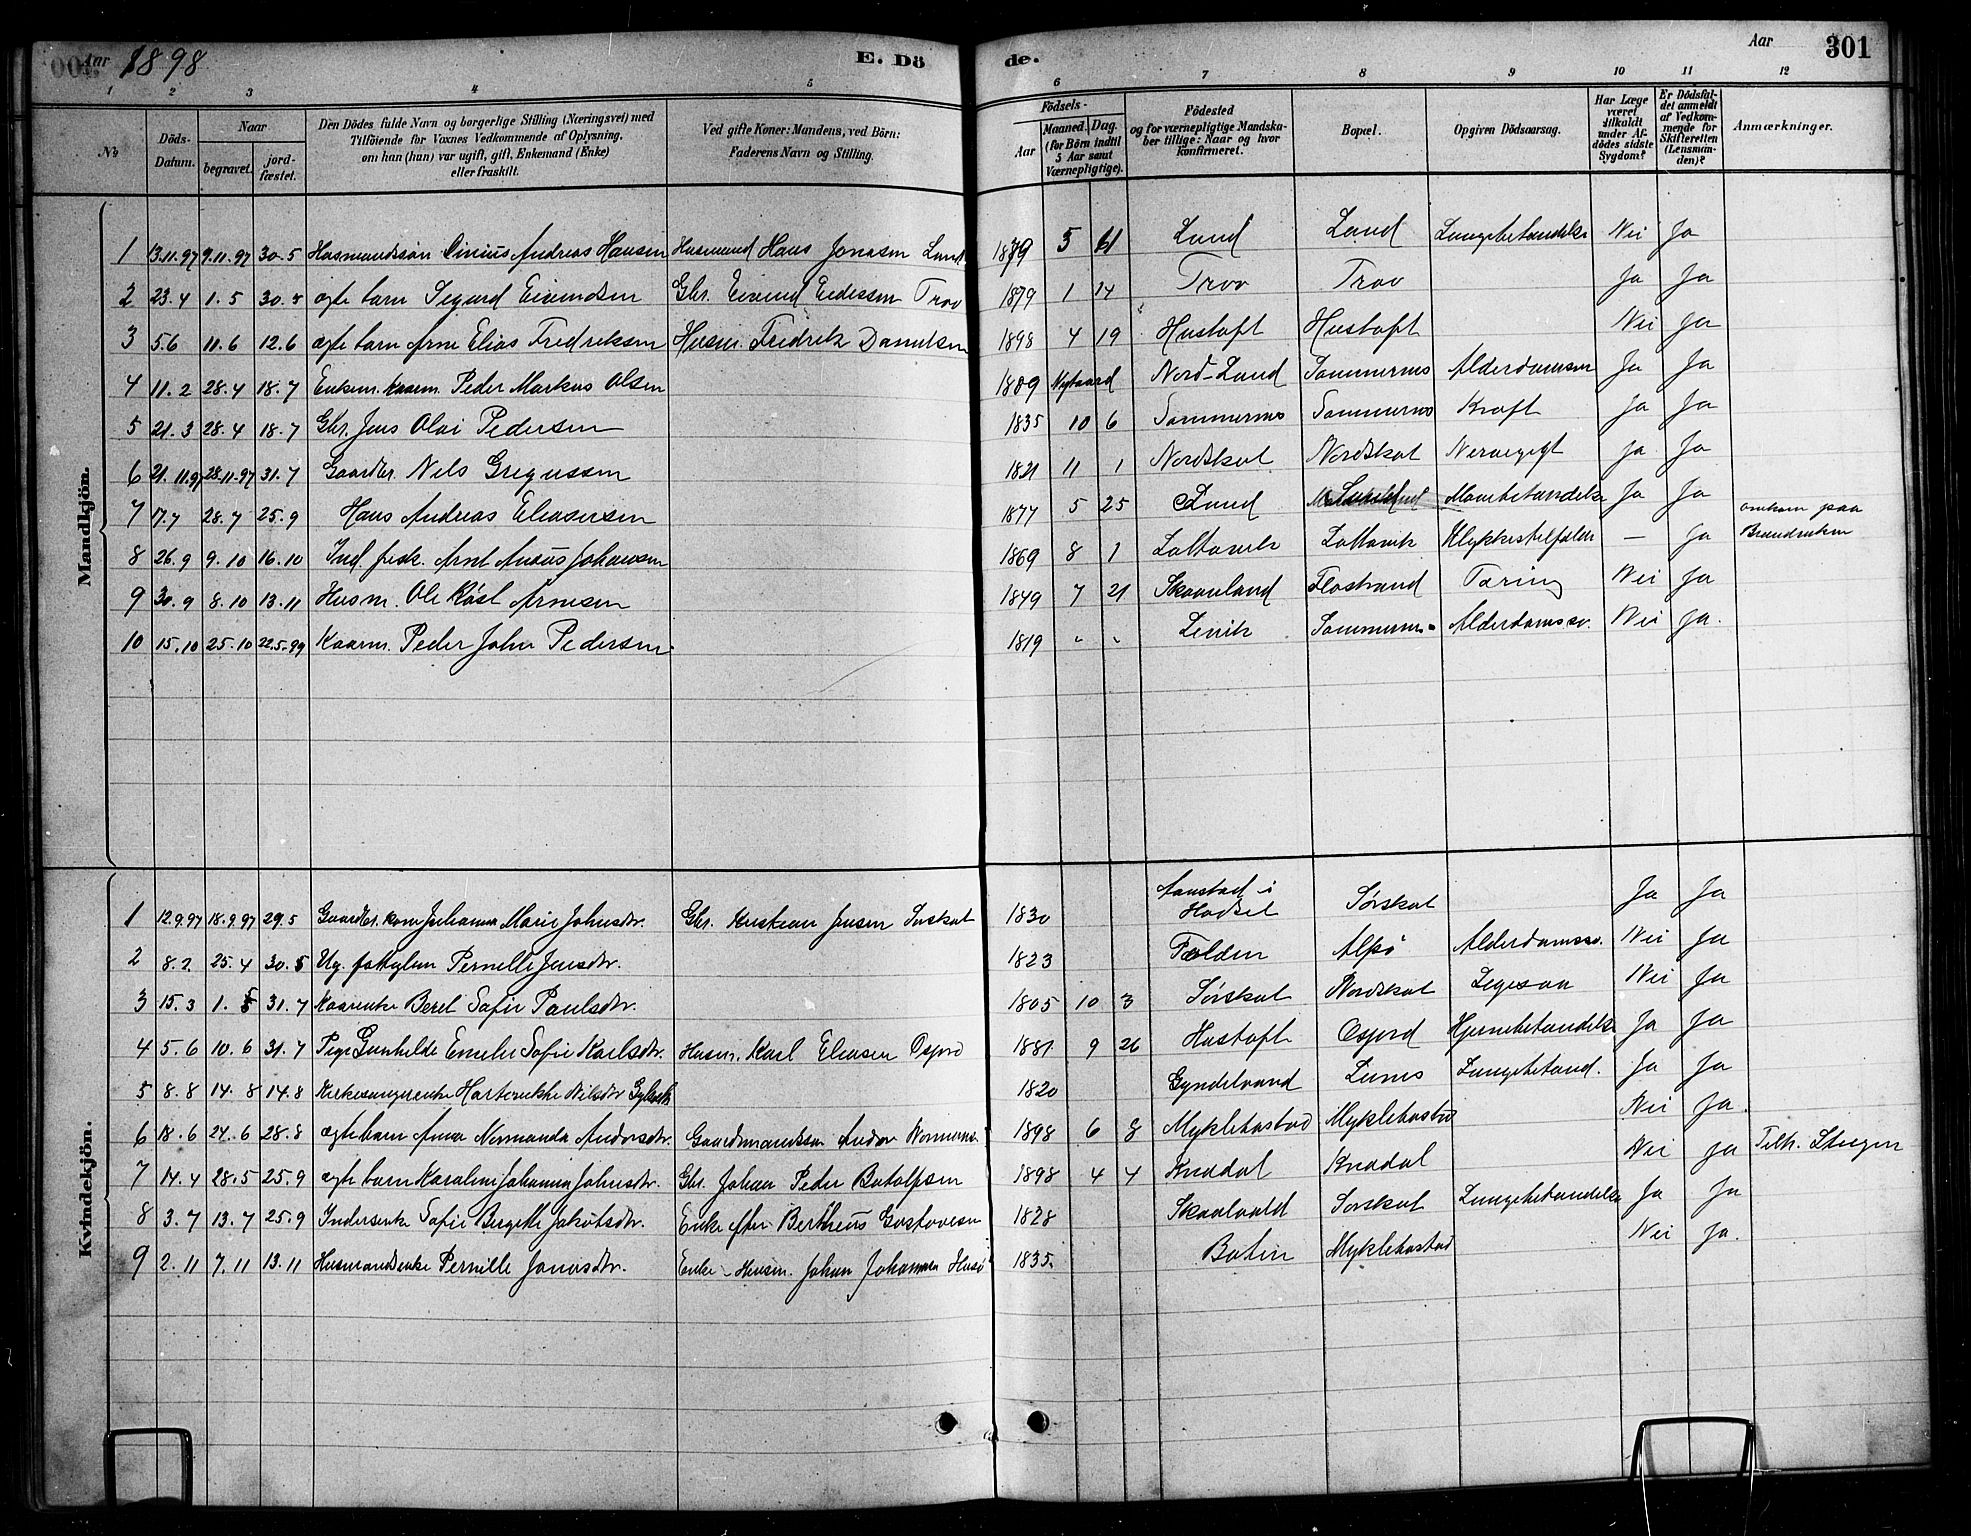 Aar 1898 E. Döde. Aar 301
1 2 3 4 5 6 7 8 9 10 11 12
No
Döds-Datum.
Naar
begravet.
jordfæstet.
Den Dödes fulde Navn og borgerlige Stilling (Næringsvei) med
Tilföiende for Voxnes Vedkommende af Oplysning,
om han (hun) var ugift, gift, Enkemand (Enke)
eller fraskilt.
Ved gifte Koner: Mandens, ved Börn:
Faderens Navn og Stilling.
Födsels-
Aar
Maaned. Dag.
(for Börn indtil
5 Aar samt
Værnepligtige).
Födested
og for værnepligtige Mandska-
ber tillige: Naar og hvor
konfirmeret.
Bopæl.
Opgiven Dödsaarsag.
Har Læge
været
tilkaldt
under Af-
dödes sidste
Sygdom?
Er Dödsfal-
det anmeldt
af Vedkom-
mende for
Skifteretten
(Lensman-
den)?
Anmærkninger.
Mandkjön.
1 13.11.97 9.11.97 30.5 Husmandssøn Andreas Hansen Husmand Hans Jonassen Lund 1879 5 Lund Lund Lungebetændelse Nei Ja
2 23.4 1.5 30.5 ægte barn Sigurd Eivindsen Gbr. Eivind Trov 1879 1 14 Trov Trov Ja Ja
3 5.6 11.6 12.6 ægte barn Arne Elias Fredriksen Husm. Fredrik Danielsen 1898 4 19 Hustoft Hustoft Nei Ja
4 11.2 28.4 18.7 Enkem. kaarm. Peder Markus Olsen 1809 Nytaard Nord-Lund Sommernes Alderdomssv Ja Ja
5 21.3 28.4 18.7 Gbr. Jens Olai Pedersen 1835 10 6 Sommernes Sommernes Kræft Ja Ja
6 21.11.97 28.11.97 31.7 Gaardbr. Nils Gregussen 1821 11 1 Nordskot Nordskot Nervegigt Ja Ja
7 17.7 28.7 25.9 Hans Andreas Eleasersen 1877 5 25 Lund Mavebetændelse Ja Ja
8 26.9 9.10 16.10 Ind. fisk. Arnt Johansen 1869 8 1 Løttavik Løttavik Ulykkestilfælde — Ja omkom paa
9 30.9 8.10 13.11 Husm. Ole Røst Arnesen 1849 7 21 Skaanland Flostrand Tæring Nei Ja
10 15.10 25.10 22.5.99 Kaarm. Peder John Pedersen 1819 " " Lenvik Sommernes Alderdomssv. Nei Ja.
Kvindekjön.
1 12.9.97 18.9.97 29.5 Gaardbr. kone Johanna Marie Johnsdtr. Gbr. Kristian Jensen Sørskot 1830 Aanstad i
Hadsel Sørskot Ja Ja
2 8.2. 25.4 30.5 Ug. fattiglem Pernelle Jensdtr. 1823 Folden Alpø Alderdomssv. Nei Ja
3 15.3 1.5 31.7 Kaarenke Berel Sofie Paulsdtr. 1805 10 3 Sørskot Nordskot Legesaa Nei Ja
4 5.6 10.6 31.7 Pige Gunhilde Emelie Sofie Karlsdtr. Husm. Karl Eleasen Osfjord 1881 9 26 Hustoft Osfjord Hjernebetændelse Ja Ja
5 8.8 14.8 14.8 Kirkesangerenke Nilsdtr 1820 Gyndelvand Leines Lungebetænd. Ja Ja
6 18.6 24.6 28.8 ægte barn Anna Normanda Andorsdtr. Gaardmandssøn Andor 1898 6 8 Myklebostad Myklebostad Nei Ja.
7 14.4 28.5 25.9 ægte barn Karoline Johanna Johnsdtr. Gbr. Johan Peder Botolfsen 1898 4 4 Knædal Knædal Nei Ja Tilh. Steigen
8 3.7 13.7 25.9 Inderstenke Sofie Birgitte Jakobsdtr. Enke efter Bertheus Gustavesen 1828 Skaalvold Sørskot Lungebetændelse Ja Ja
9 2.11 7.11 13.11 Husmandsenke Pernille Jonasdtr. Enke - Husm. Johan Johannesen Husø 1835. Botin Myklebostad Nei Ja.